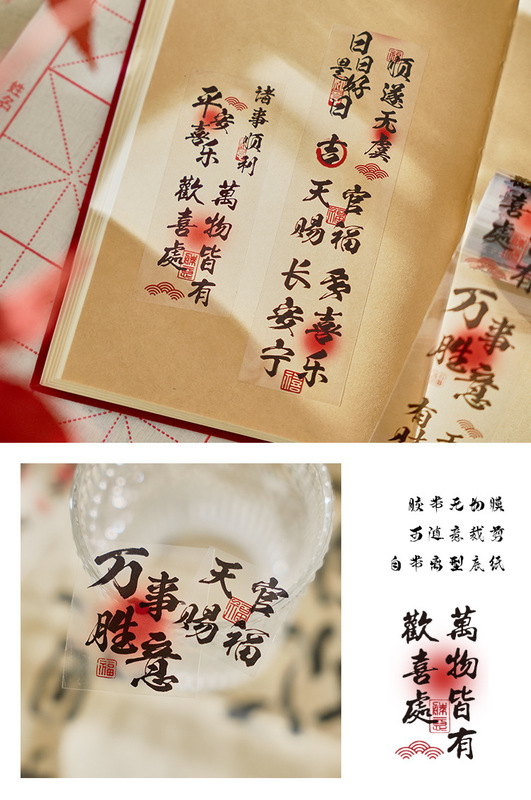 姓名
顺遂无虞
日日是好日
吉
天官赐福
多喜乐
长安宁
诸事顺利
平安喜乐
萬物皆有
歡喜處
万事胜意
万事胜意
天官赐福
胶带无切膜
可随意裁剪
自带离型底纸
萬物皆有
歡喜處